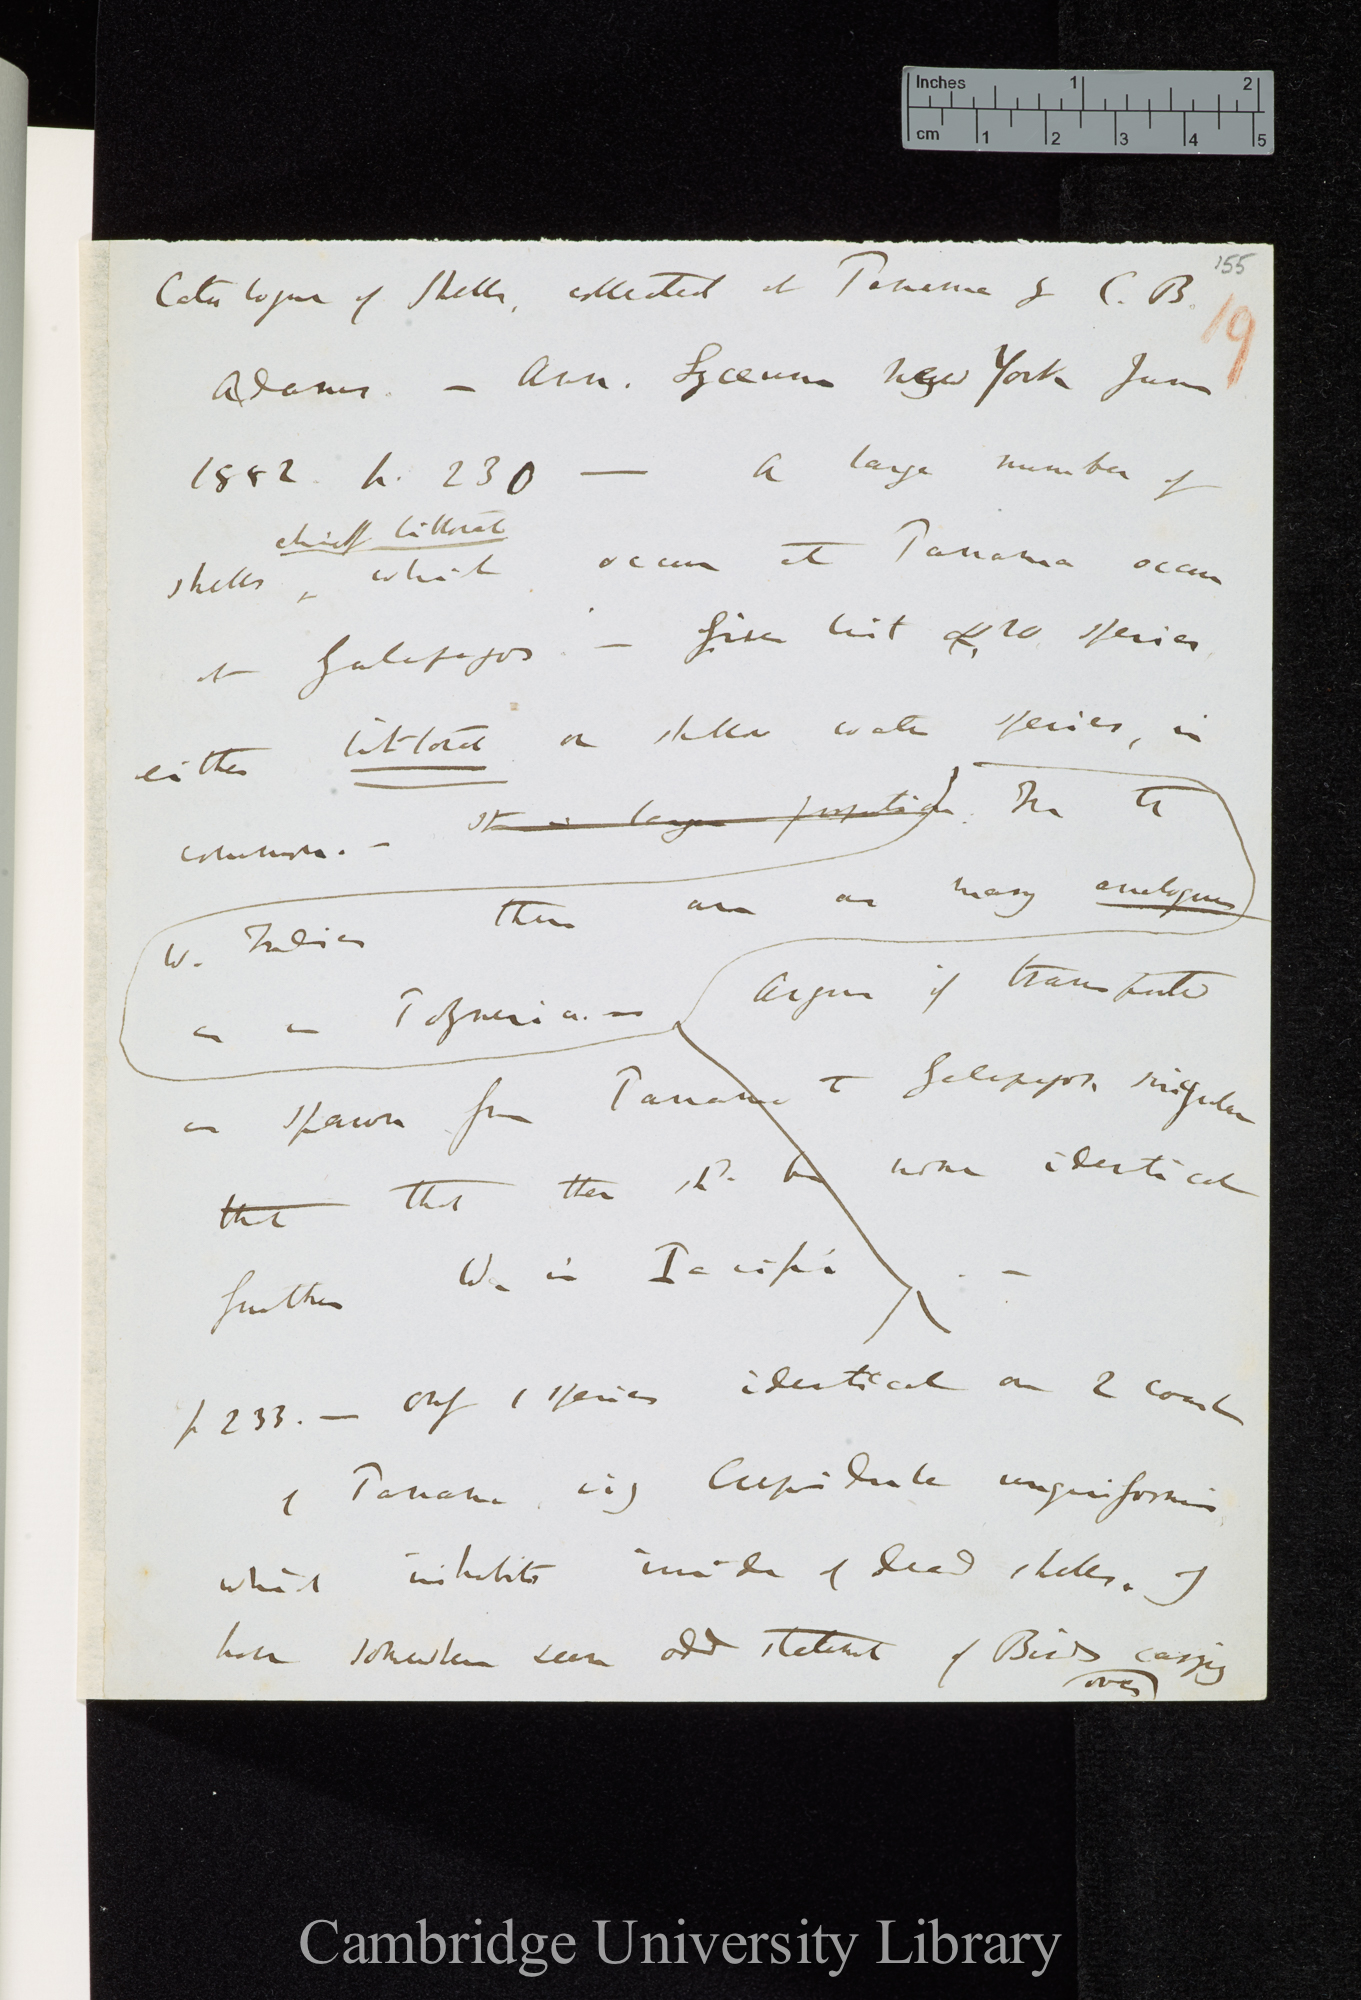 Inches 1 2
cm 1 2 3 4 5
155
19
Catalogue of Shells, collected at Panama by C. B.
Adams. — Ann. Lyceum New York June
1852 p. 230 — A large number of
chiefly littoral
shells, which occur at Panama occur
at Galapagos. — Gives list of 20 species
either littoral or shallow water species, in
common. — In the
W. Indies there are as many analogues
as in Polynesia. —
Argue if transported
as spawn from Panama to Galapagos singular
that that there shd. be none identical
further W. in Pacific. —
p 233. — Only 1 species identical on 2 coasts
of Panama, viz Crepidula unguiformis
which inhabits inside of dead shells. I
have somewhere seen odd statement of Birds carrying
(over)
Cambridge University Library